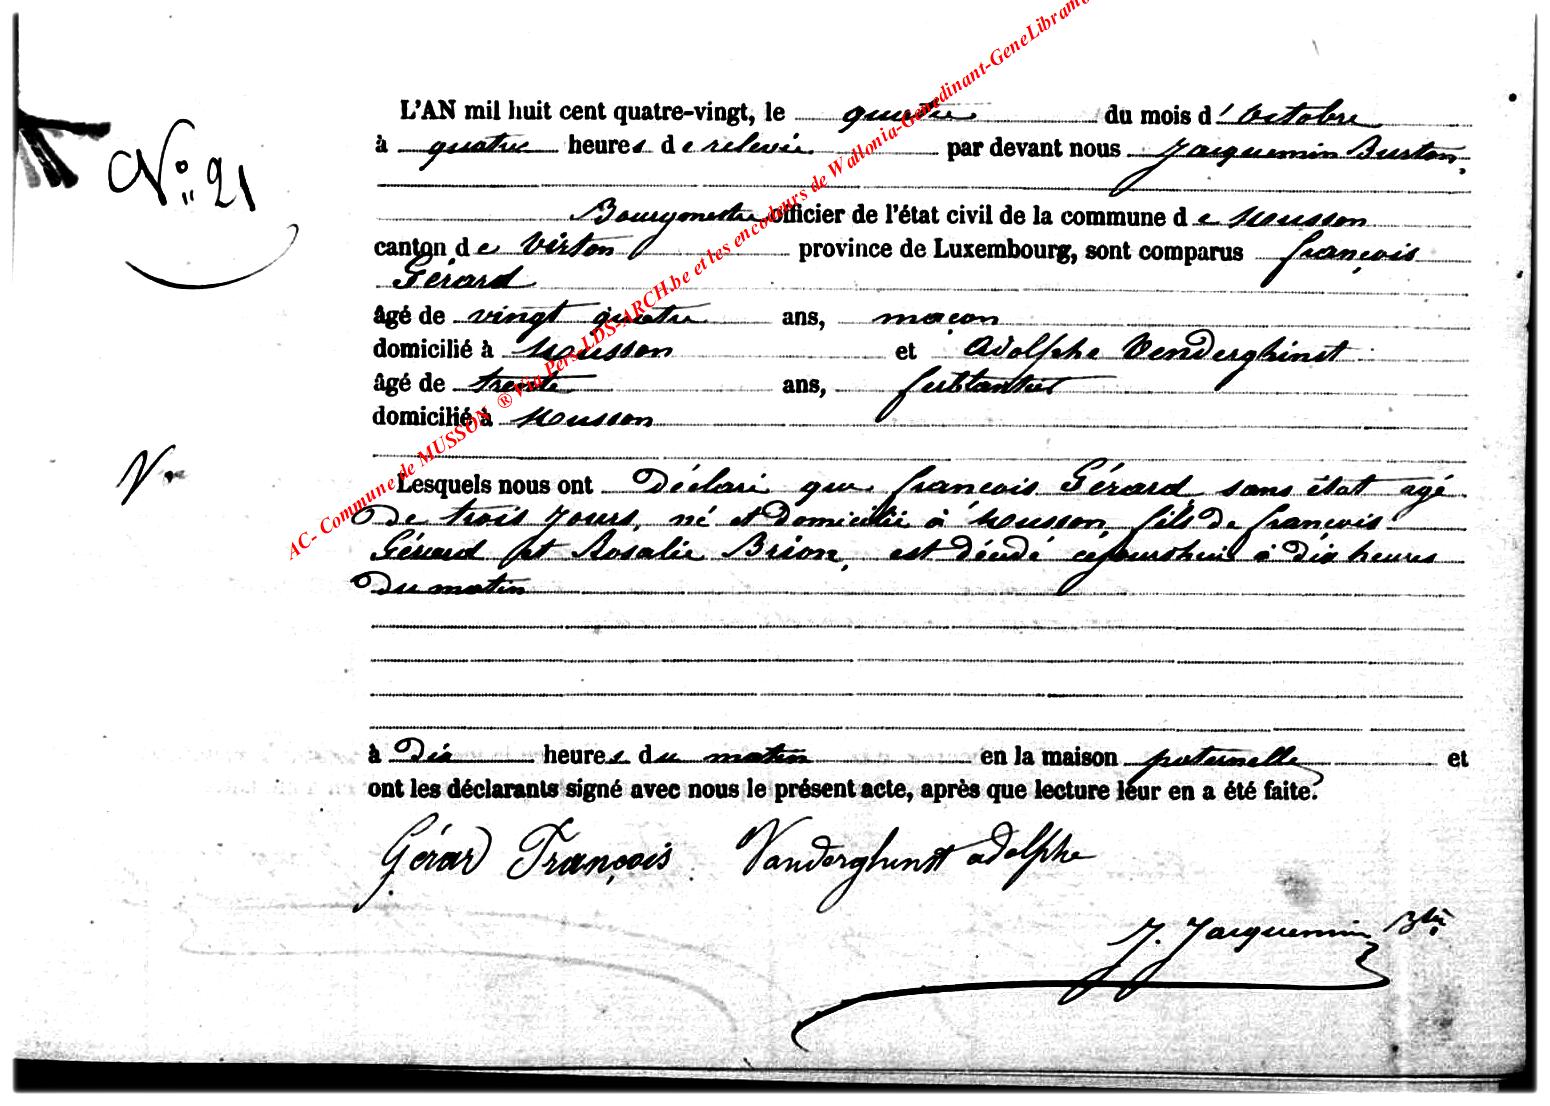 L'AN mil huit cent quatre-vingt, le quatre du mois d'Octobre
à quatre heures de relevée par devant nous Jacquemin Burton,
N° 21
Bourgmestre officier de l'état civil de la commune de Musson
canton de Virton province de Luxembourg, sont comparus françois
Gérard
âgé de vingt quatre ans, maçon
domicilié à Musson et Adolphe Vanderghinst
âgé de trente ans,
domicilié à Musson
Lesquels nous ont Déclaré que françois Gérard sans état agé
De trois jours, né et Domicilié à Musson fils De françois
Gérard et Rosalie Brion, est décédé cejourd'hui à dix heures
Du matin
à Dix heures du matin en la maison paternelle et
ont les déclarants signé avec nous le présent acte, après que lecture leur en a été faite.
Gérard François Vanderghinst adolphe
J. Jacquemin
AC- Commune de MUSSON ® Via Pers-LDS-ARCH.be et les encodeurs de Wallonia-Genedinant-GeneLibramo